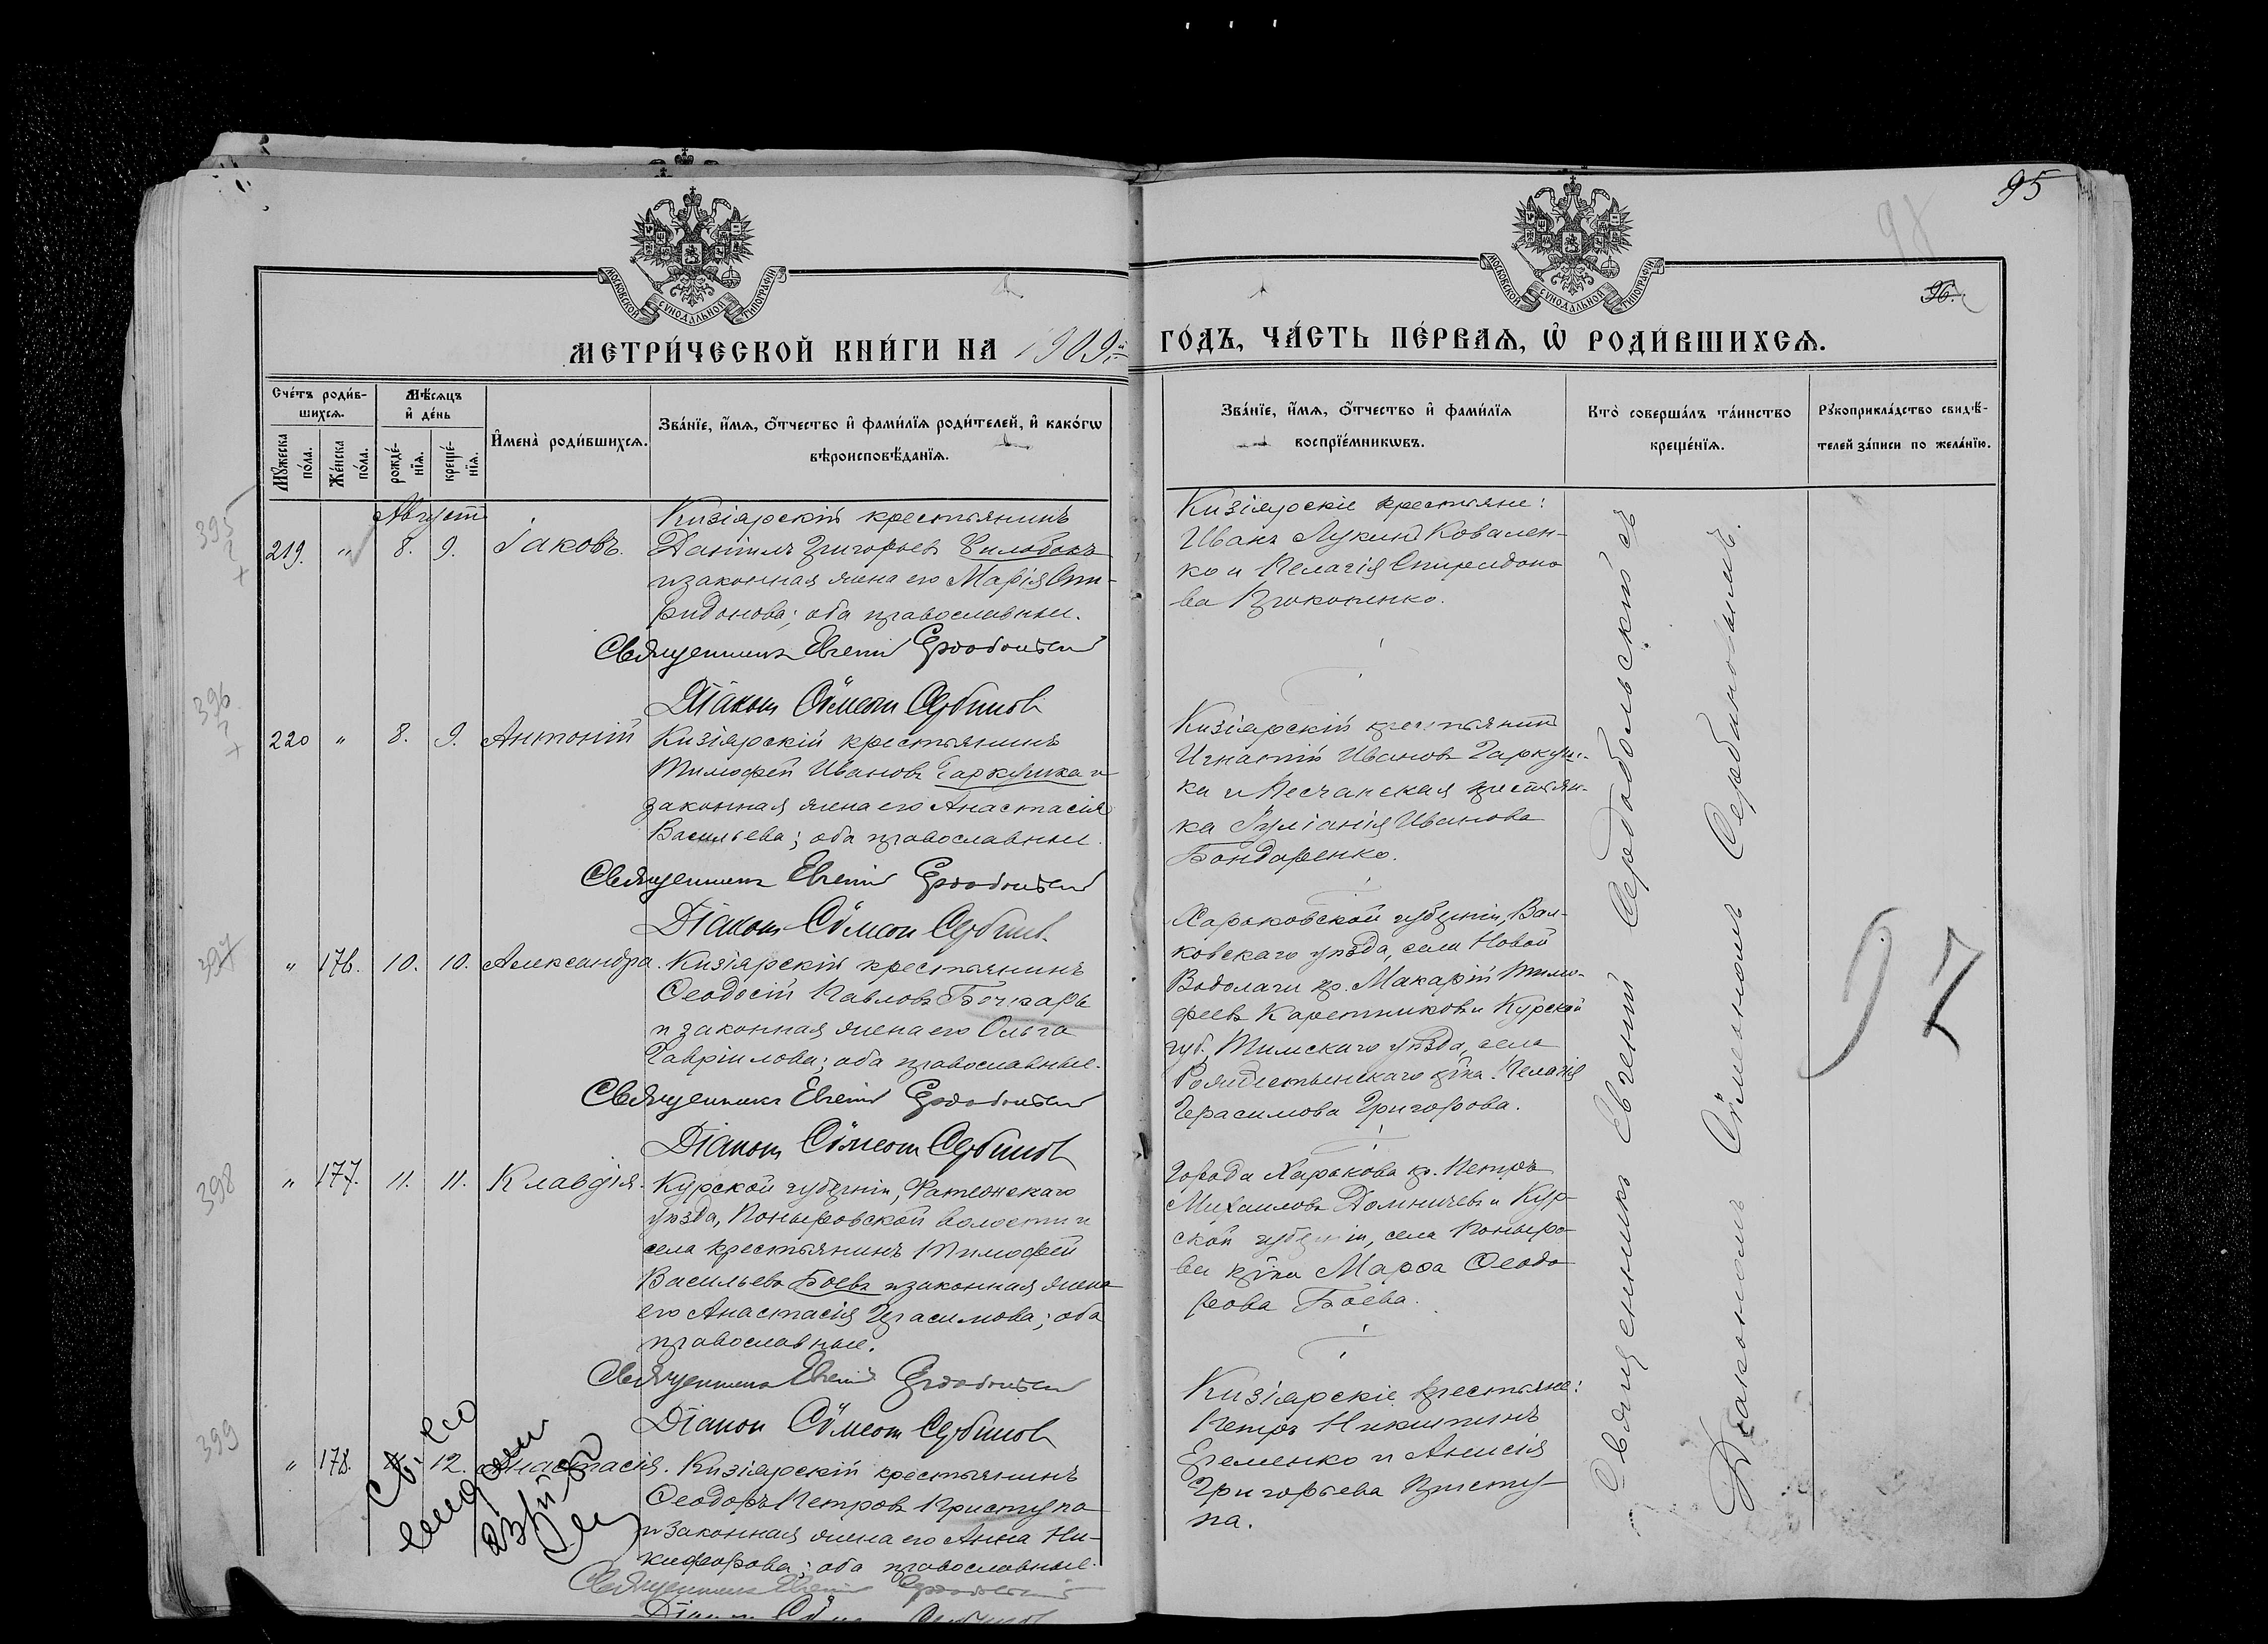 95
96.
МОСКОВСКОЙ СѴНОДАЛЬНОЙ ТИПОГРАФІИ
МОСКОВСКОЙ СѴНОДАЛЬНОЙ ТИПОГРАФІИ
МЕТРИ́ЧЕСКОЙ КНИ́ГИ НА 1909й
ГО́ДЪ, ЧА́СТЬ ПЕ́РВАѦ, Ѡ҆ РОДИ́ВШИХСѦ.
Сче́тъ роди́в-
шихсѧ.
Мꙋ́жеска по́ла.
Же́нска по́ла.
Мѣ́сѧцъ
и҆ де́нь
рожде́-
нїѧ.
креще́-
нїѧ.
И҆мена̀ роди́вшихсѧ.
Зва́нїе, и҆́мѧ, ѻ҆́тчество и҆ фами́лїѧ роди́телей, и҆ како́гѡ
вѣроисповѣ́данїѧ.
Зва́нїе, и҆́мѧ, ѻ҆́тчество и҆ фами́лїѧ
воспрїе́мникѡвъ.
Кто̀ соверша́лъ та́инство
креще́нїѧ.
Рꙋкоприкла́дство свидѣ́-
телей за́писи по жела́нїю.
395
Августъ
219. " 8. 9. Іаковъ.
Кизіярскій крестьянинъ
Даніилъ Григорьевъ Билобокъ
и законная жена его Марія Спи-
ридонова; оба православные.
Священникъ Евгеній Сердобольскій
Діаконъ Сѵмеонъ Сербиновъ
Кизіярскіе крестьяне:
Иванъ Лукинъ Ковален-
ко и Пелагія Спиридоно
ва Прокопенко.
396
220 " 8. 9. Антоній
Кизіярскій крестьянинъ
Тимофей Ивановъ Гаркушка и
законная жена его Анастасія
Васильева; оба православные.
Священникъ Евгеній Сердобольскій
Діаконъ Сѵмеонъ Сербиновъ
Кизіярскій крестьянинъ
Игнатій Ивановъ Гаркуш-
ка и Песчанская крестьян-
ка Іуліанія Иванова
Бондаренко.
397
" 176. 10. 10. Александра.
Кизіярскій крестьянинъ
Ѳеодосій Павловъ Бочкарь
и законная жена его Ольга
Гавріилова; оба православные.
Священникъ Евгеній Сердобольскій
Діаконъ Сѵмеонъ Сербиновъ
Харьковской губерніи, Вал-
ковскаго уѣзда, села Новой
Водолаги кр. Макарій Тимо-
феевъ Каретниковъ и Курской
губ. Тимскаго уѣзда, села
Рождественскаго кр-ка Пелагія
Герасимова Григорова.
398
" 177. 11. 11. Клавдія.
Курской губерніи, Фатежскаго
уѣзда, Поныровской волости и
села крестьянинъ Тимофей
Васильевъ Боевъ и законная жена
его Анастасія Герасимова; оба
православные.
Священникъ Евгеній Сердобольскій
Діаконъ Сѵмеонъ Сербиновъ
Города Харькова кр. Петръ
Михаиловъ Домничевъ и Кур-
ской губерніи, села Поныро-
вки кр-ка Марѳа Ѳеодо
рова Боева.
399
" 178. 12. Анастасія.
Кизіярскій крестьянинъ
Ѳеодоръ Петровъ Приступа
и законная жена его Анна Ни-
кифорова; оба православные.
Священникъ Евгеній Сердобольскій
Діаконъ Сѵмеонъ Сербиновъ
Кизіярскіе крестьяне:
Петръ Никитинъ
Еременко и Анисія
Григорьева Присту-
па.
Священникъ Евгеній Сердобольскій съ
Діакономъ Сѵмеономъ Сербиновымъ.
97